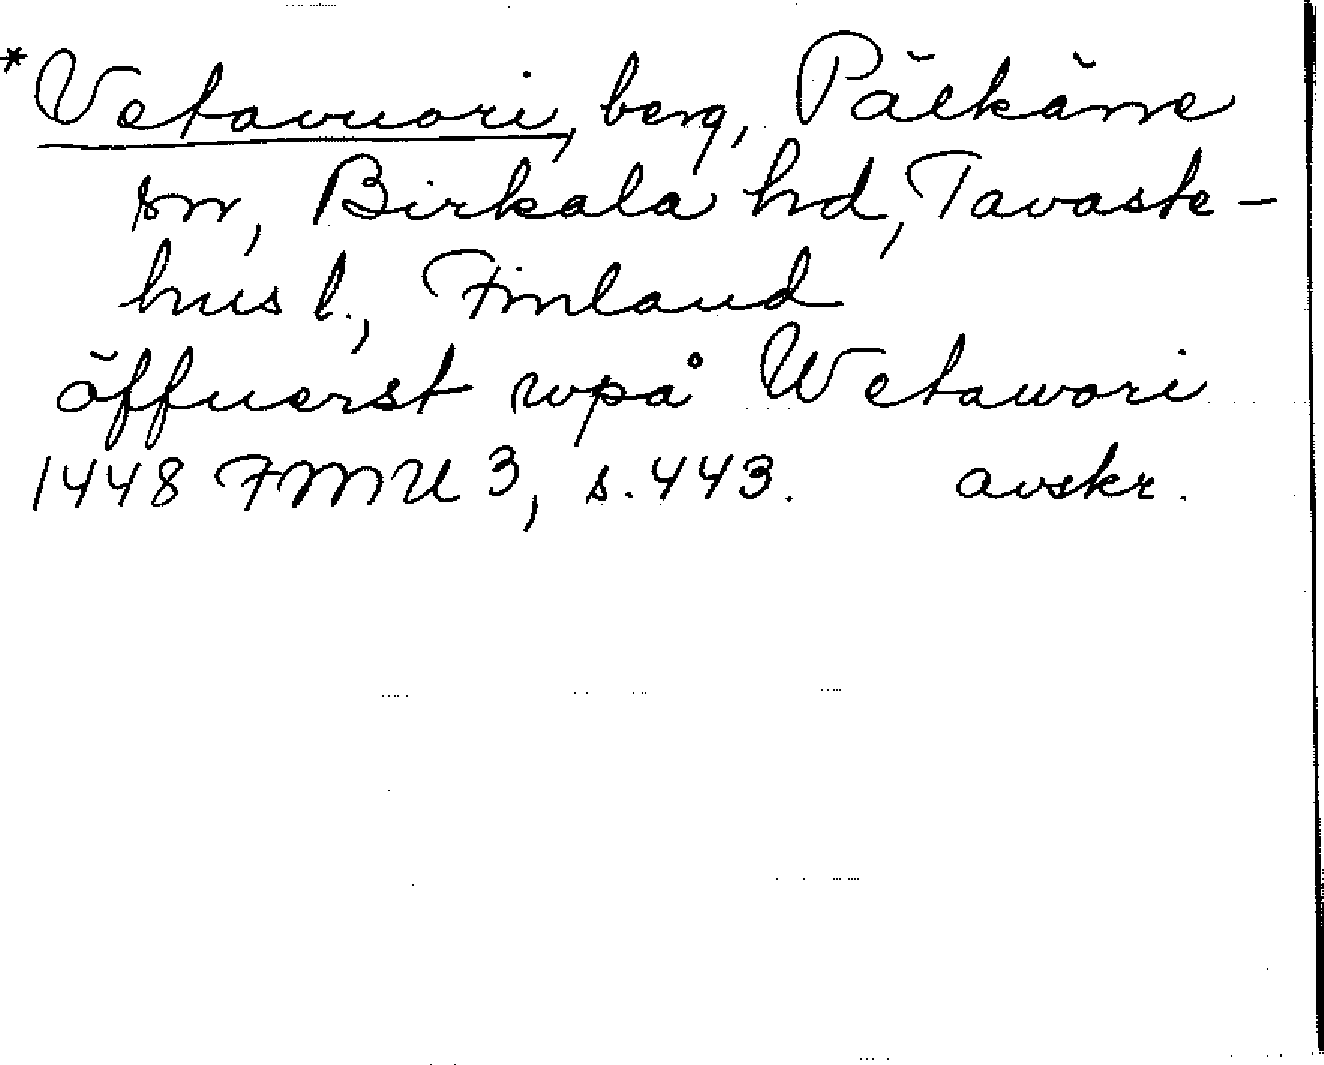 *Vetavuori, berg, Pälkäne
sn, Birkala hd, Tavaste-
hus l., Finland
äffuerst wpå Wetawori
1448 FMU 3, s. 443. avskr.